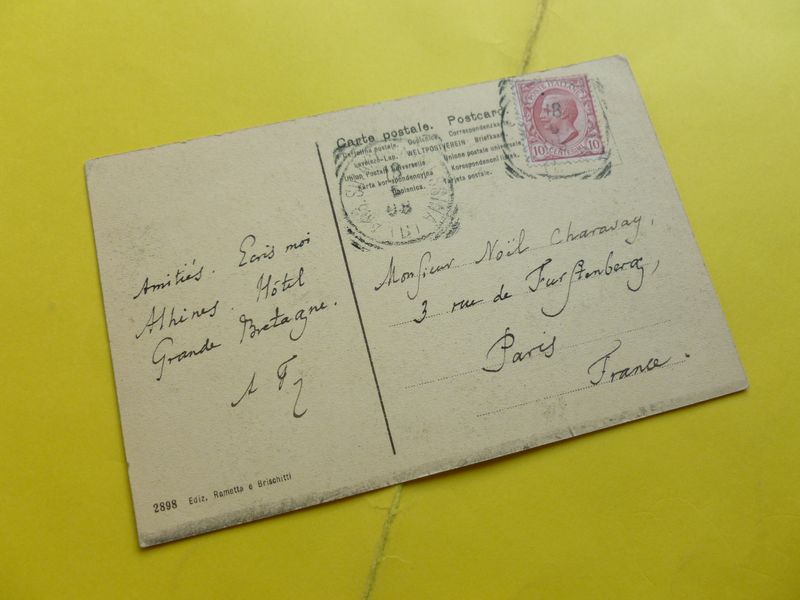 Carte postale. Postcard
Cartolina postale. Dopisnice. Correspondenzkarte
Levelező-Lap. WELTPOSTVEREIN Briefkaart
Union Postale Universelle Unione postale universale
Karta korespondencyjna Korespondenční lístek.
Dopisnica. Tarjeta postal.
08
POSTE ITALIANE
18
10 CENTESIMI 10
Amitiés. Ecris moi
Athènes. Hôtel
Grande Bretagne.
A F
Monsieur Noël Charavay,
3 rue de Furstenberg,
Paris
France.
2898 Ediz. Rametta e Brischitti